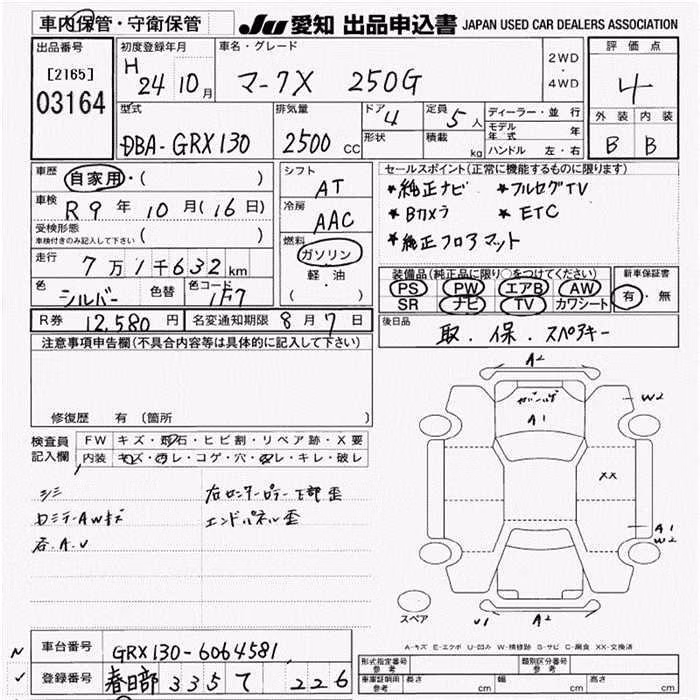 車内保管・守衛保管 JU 愛知 出品申込書 JAPAN USED CAR DEALERS ASSOCIATION
出品番号 [2165] 03164
初度登録年月 H 24 10月
車名・グレード マークX 250G
2WD・4WD
評価点 4
外装 内装
B B
型式 DBA-GRX130
排気量 2500 CC
ドア 4
形状
定員 5人
積載 kg
ディーラー・並行
モデル年式 年
ハンドル 左・右
車歴 自家用・( )
車検 R9年 10月(16日)
受検形態 車検付きのみ記入して下さい ( )
走行 7万1千632km
色 シルバー 色替 色コード 1F7
シフト AT
冷房 AAC
燃料 ガソリン
軽・油
( )
セールスポイント(正常に機能するものに限ります)
*純正ナビ *フルセグTV
*Bカメラ *ETC
*純正フロアマット
装備品(純正品に限り○をつけてください) 新車保証書
PS PW エアB AW 有・無
SR ナビ TV カワシート
R券 12,580円 名変通知期限 8月7日
後日品 取.保.スペアキー
注意事項申告欄(不具合内容等は具体的に記入して下さい)
修復歴 有(箇所 )
検査員記入欄
FW キズ・飛石・ヒビ割・リペア跡・X要
内装 キズ・汚レ・コゲ・穴・スレ・キレ・破レ
シミ
ロミテーAWキズ
各.A.U
右ロッカーロアー下部歪
エンドパネル歪
A2
A1
W2
XX
A1
W2
U1 A2
スペア
A-キズ E-エクボ U-凹み W-補修跡 S-サビ C-腐食 XX-交換済
N
車台番号 GRX130-6064581
✓
登録番号 春日部 335 て 226
形式指定番号 参考 類別区分番号 参考
車庫証明用 参考 長さ cm 幅 cm 高さ cm